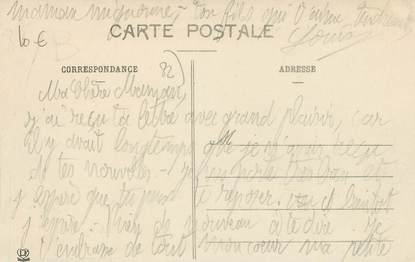 maman mignonne, - Ton fils qui t'aime tendrement
Louis
60 €
CARTE POSTALE
CORRESPONDANCE
82
ADRESSE
Ma Chère Maman,
j'ai reçu ta lettre avec grand plaisir, car
il y avait longtemps que je n'avais reçu
de tes nouvelles -
j'espère que tu peux te reposer
j'espère. - Rien de nouveau à te dire. Je
t'embrasse de tout mon coeur ma petite